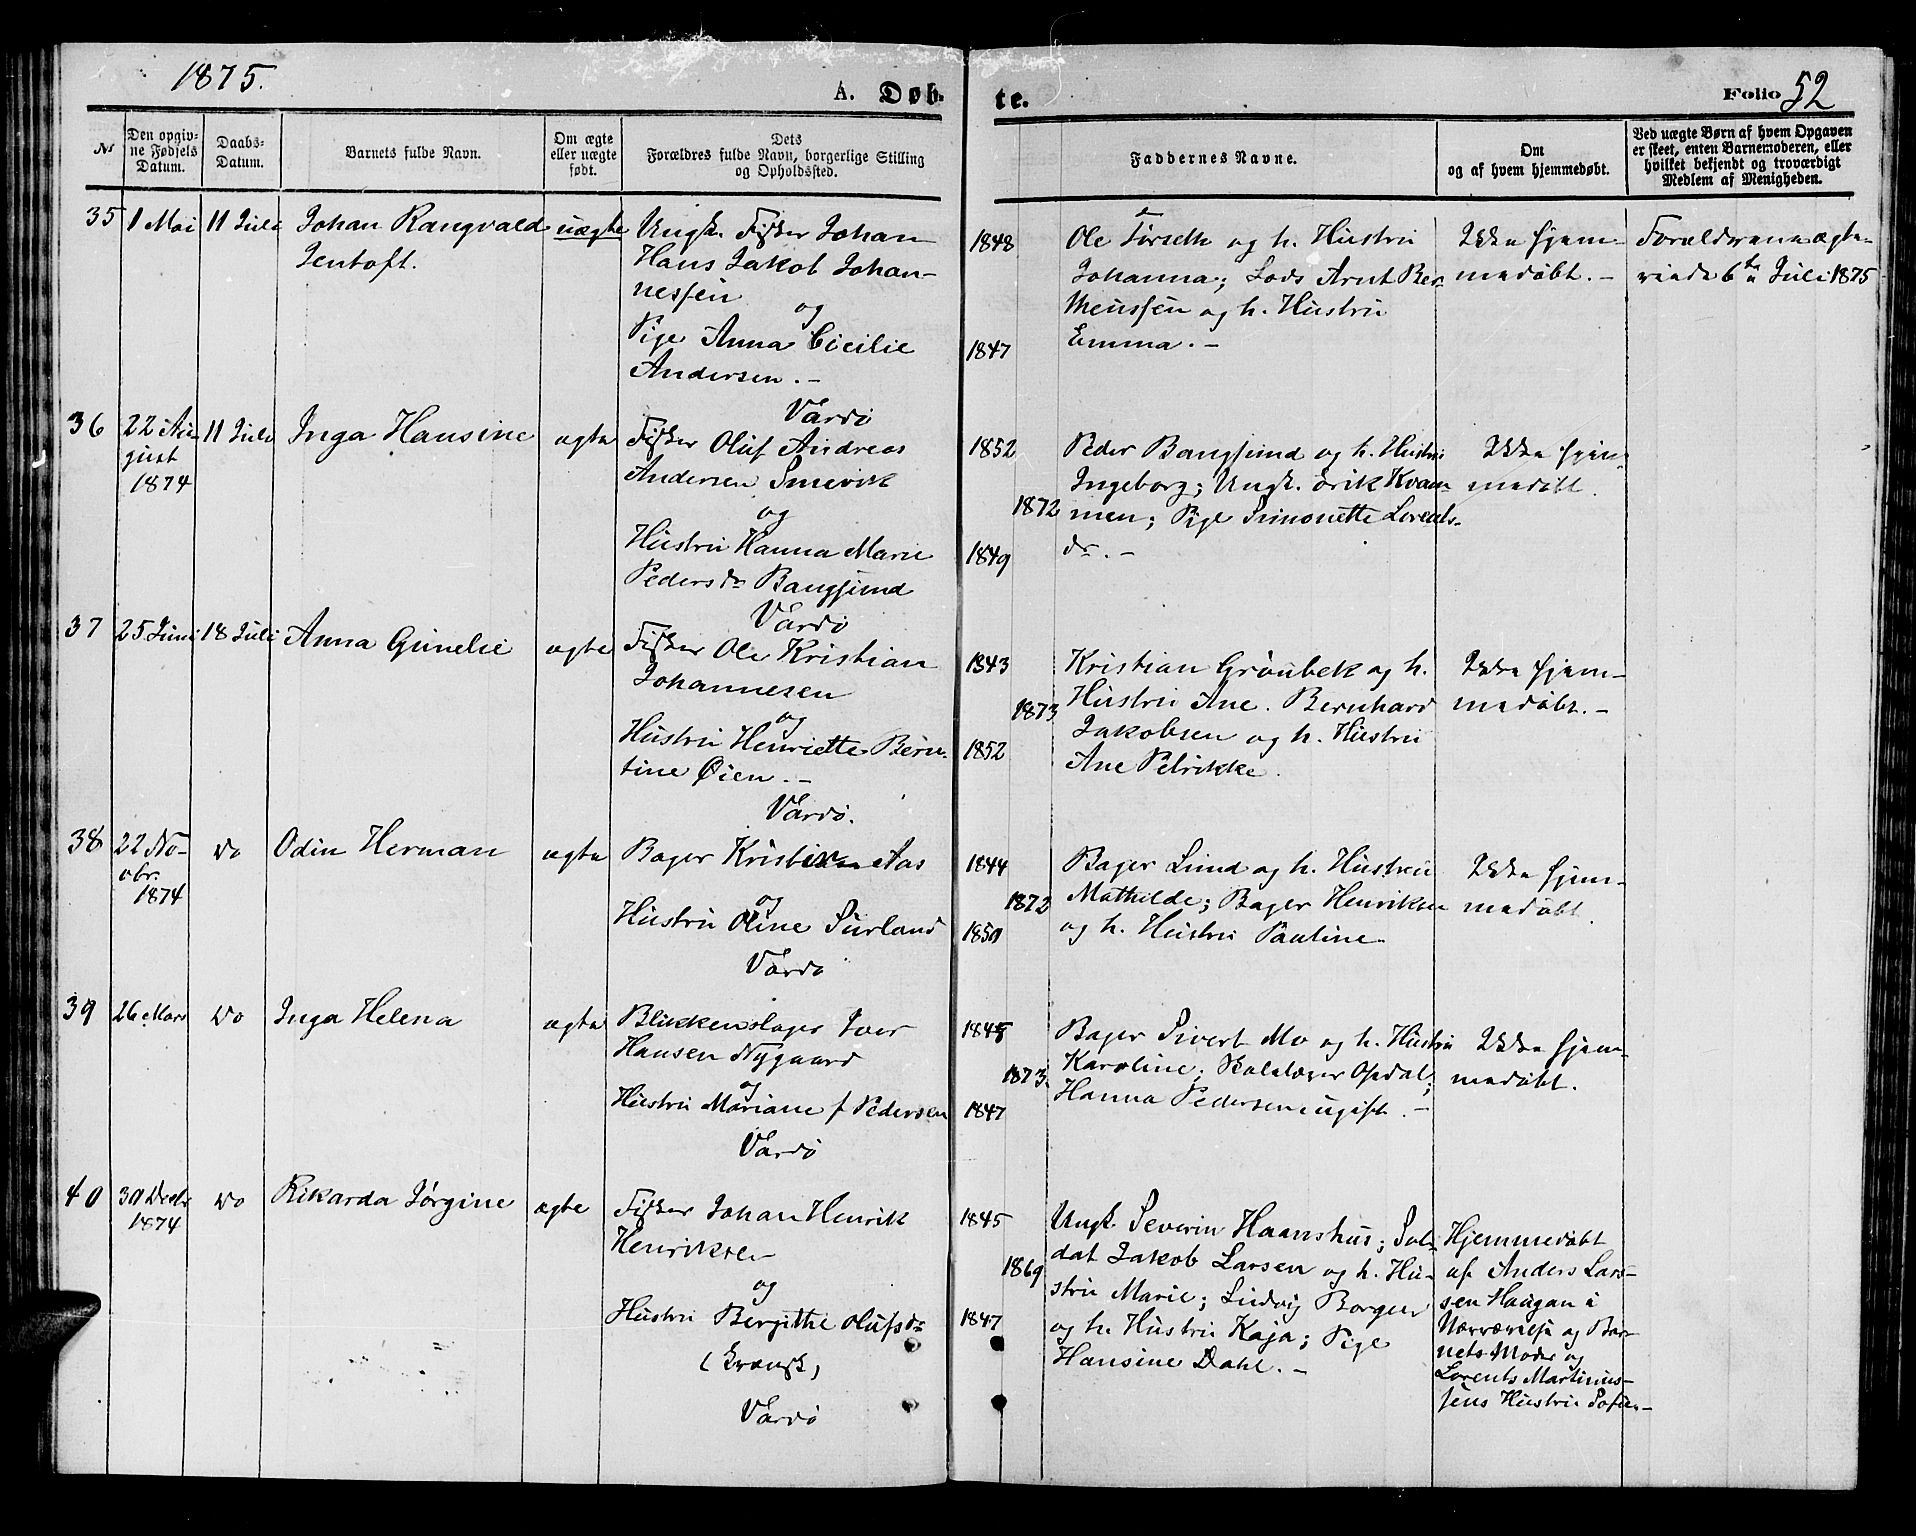 1875.
A. Døb-
te.
Folio 52
No
Den opgiv-
ne Fødsels
Datum.
Daabs-
Datum.
Barnets fulde Navn.
Om ægte
eller uægte
født.
Dets
Forældres fulde Navn, borgerlige Stilling
og Opholdssted.
Faddernes Navne.
Om
og af hvem hjemmedøbt.
Ved uægte Børn af hvem Opgaven
er skeet, enten Barnemoderen, eller
hvilket bekjendt og troværdigt
Medlem af Menigheden.
35
1 Mai
11 Juli
Johan Rangvald
Jentoft.
uægte
Ungk. Fisker Johan
Hans Jakob Johan-
nessen
og
Pige Anna Cicilie
Andersen. -
Vardö
1848
1847
Ole Torseth og h. Hustru
Johanna; Lods Arnt Ber-
theussen og h. Hustru
Emma. -
Ikke hjem-
medöbt. -
Forældrene ægte-
viede 6te Juli 1875
36
22 Au-
gust
1874
11 Juli
Inga Hansine
ægte
Fisker Oluf Andreas
Andersen Snevik
og
Hustru Hanna Marie
Pedersdr Bangsund
Vardö
1852
1872
1849
Peder Bangsund og h. Hustru
Ingeborg; Ungk. Erik Kvam-
men; Pige Simonette Lorents-
dr. -
Ikke hjem-
medöbt.
37
25 Juni
18 Juli
Anna Gunelie
ægte
Fisker Ole Kristian
Johannesen
og
Hustru Henriette Bern-
tine Øien. -
Vardö.
1843
1873
1852
Kristian Grönbek og h.
Hustru Ane. Bernhard
Jakobsen og h. Hustru
Ane Petrikke.
Ikke hjem-
medöbt. -
38
22 No-
vbr.
1874
do
Odin Herman
ægte
Bager Kristian Aas
og
Hustru Oline Surland
Vardö
1844
1872
1850
Bager Lund og h. Hustru
Mathilde; Bager Henriksen
og h. Hustru Pauline
Ikke hjem-
medöbt.
39
26 Mars
do
Inga Helena
ægte
Blikkenslager Iver
Hansen Nygaard
og
Hustru Mariane f Pedersen
Vardö
1845
1873.
1847
Bager Sivert Mo og h. Hustru
Karoline; Opdal;
Hanna Pedersen ugift. -
Ikke hjem-
medöbt.
40
30 Decbr
1874
do
Rikarda Jørgine
ægte
Fisker Johan Henrik
Henriksen
og
Hustru Bergithe Olufsdr
(kvænsk)
Vardö
1845
1869
1847
Ungk. Severin Haanshus; Sol-
dat Jakob Larsen og h. Hu-
stru Marie; Ludvig Borgen
og h. Hustru Kaja; Pige
Hansine Dahl. -
Hjemmedöbt
af Anders Lars-
sen Haugan i
Nærværelse og Bar-
nets Moder og
Lorents Martinus-
sens Hustru Sofie. -